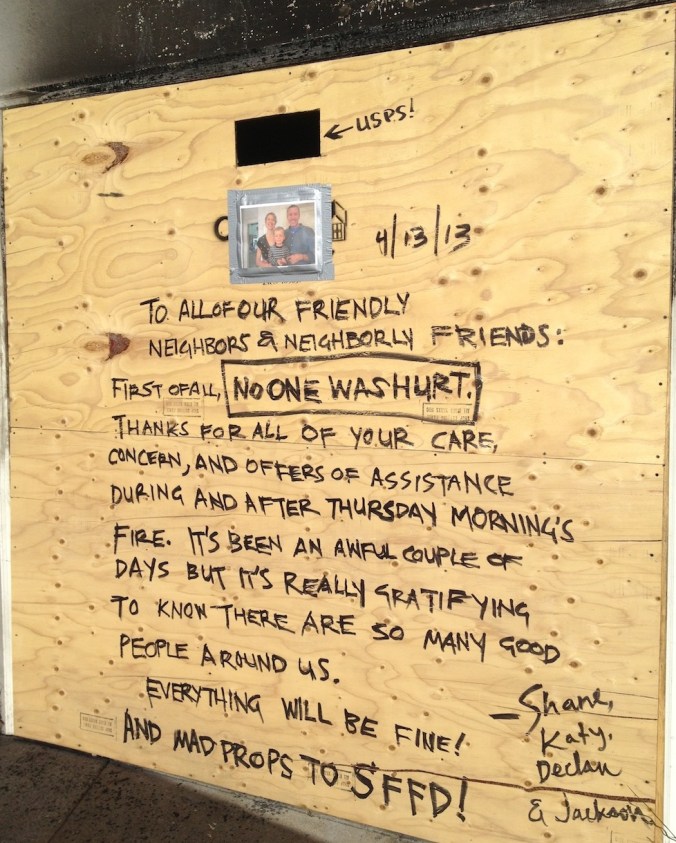 ←USPS!
4/13/13
TO ALL OF OUR FRIENDLY
NEIGHBORS & NEIGHBORLY FRIENDS:
FIRST OF ALL, NO ONE WAS HURT.
THANKS FOR ALL OF YOUR CARE,
CONCERN, AND OFFERS OF ASSISTANCE
DURING AND AFTER THURSDAY MORNING'S
FIRE. IT'S BEEN AN AWFUL COUPLE OF
DAYS BUT IT'S REALLY GRATIFYING
TO KNOW THERE ARE SO MANY GOOD
PEOPLE AROUND US.
EVERYTHING WILL BE FINE!
AND MAD PROPS TO SFFD!
—Shane,
Katy,
Declan
& Jackson